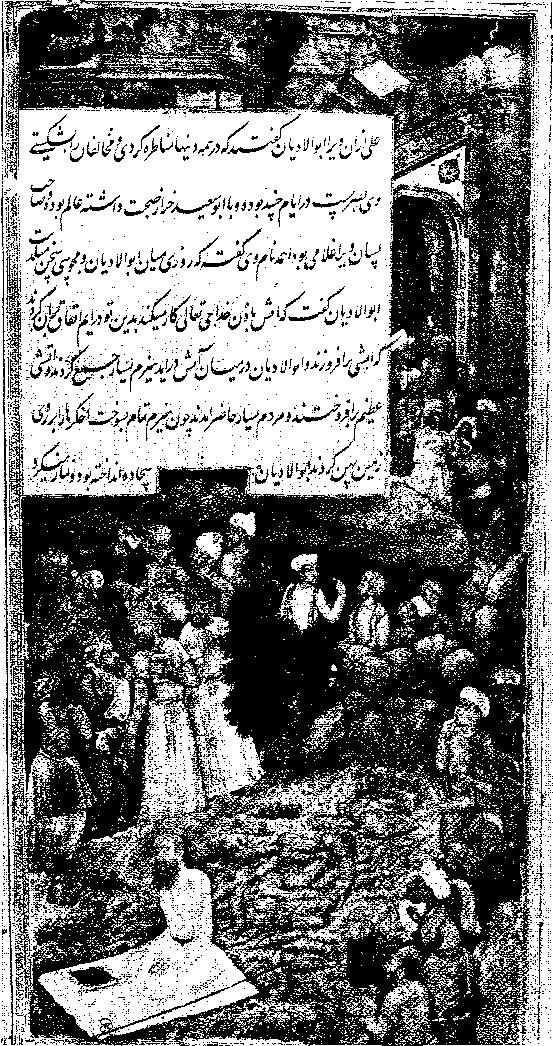 علی زان ویرا ابوالادیان گفتندکه در همه دینها مناظره کردی و مخالفان را بشکستی
وی بصریست در ایام جنید بوده و با ابوسعید خراز صحبت داشته عالم بوده و صاحب
لسان ویرا غلامی بوده احمد نام وی گفت که روزی میان ابوالادیان و مجوسی سخن میرفت
ابوالادیان گفت که آتش باذن خدای تعالی کار میکند بدین تو درایم اتفاق چنان کردند
که آتشی برافروزند و ابوالادیان درمیان آتش دراید هیزم بسیار جمع کردند و آتشی
عظیم برافروختند و مردم بسیار حاضر آمدند چون هیزم تمام بسوخت اخگرها را بر روی
زمین پهن کردند ابوالادیان سجاده انداخته بود و نماز میکرد